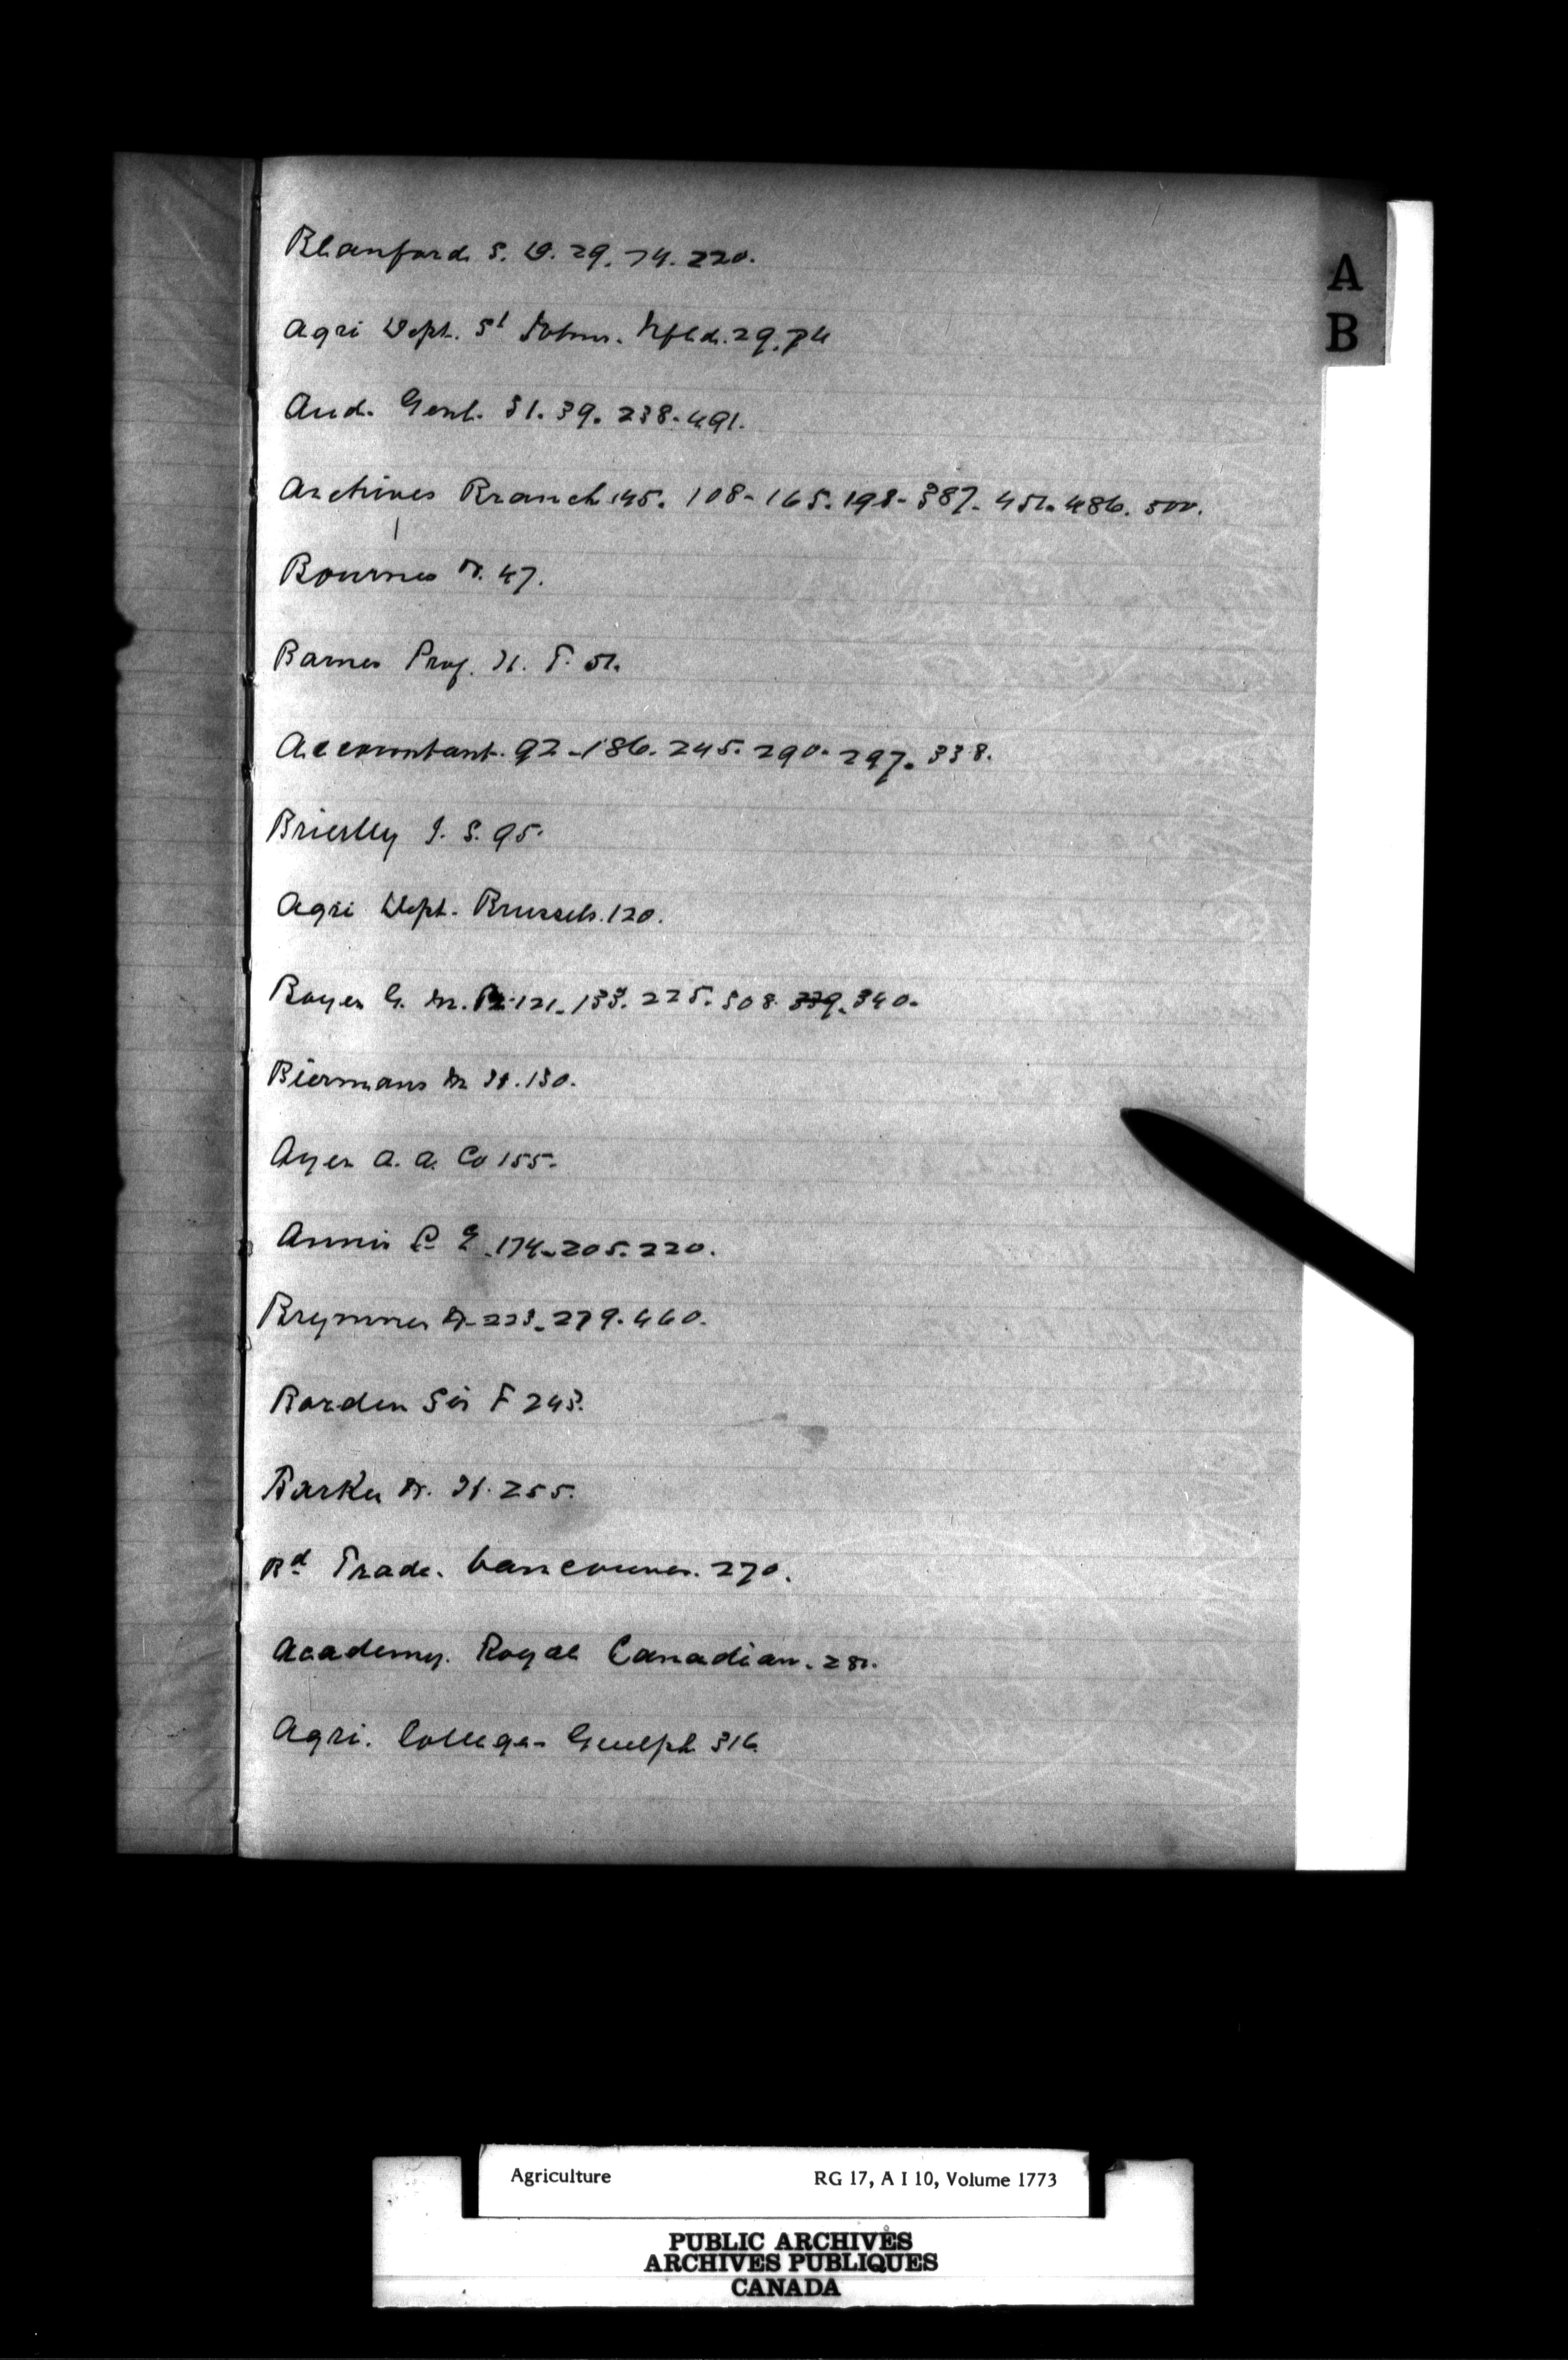 Blanford S. D. 29. 74. 220.
A
Agri Dept. St Johns. Nfld. 29. 74
B
Aud. Genl. 31. 39. 238. 491.
Archives Branch 145. 108 - 165. 198 - 387. 451. 486. 500.
Bournes Dr. 47.
Barnes Prof. H. T. 51.
Accountant. 92 - 186. 245. 290. 297. 338.
Brierlly J. S. 95.
Agri Dept. Brussels. 120.
Boyer G. M. 121. 133. 225. 308 339. 340.
Biermans M H. 130.
Ayer A. A. Co 155.
Annis P E. 174. 205. 220.
Brymner Dr. 223. 279. 460.
Borden Sir F 243.
Barker Dr. H. 255.
Bd Trade. Vancouver. 270.
Academy. Royal Canadian. 281.
Agri. College - Guelph 316.
Agriculture RG 17, A I 10, Volume 1773
PUBLIC ARCHIVES
ARCHIVES PUBLIQUES
CANADA